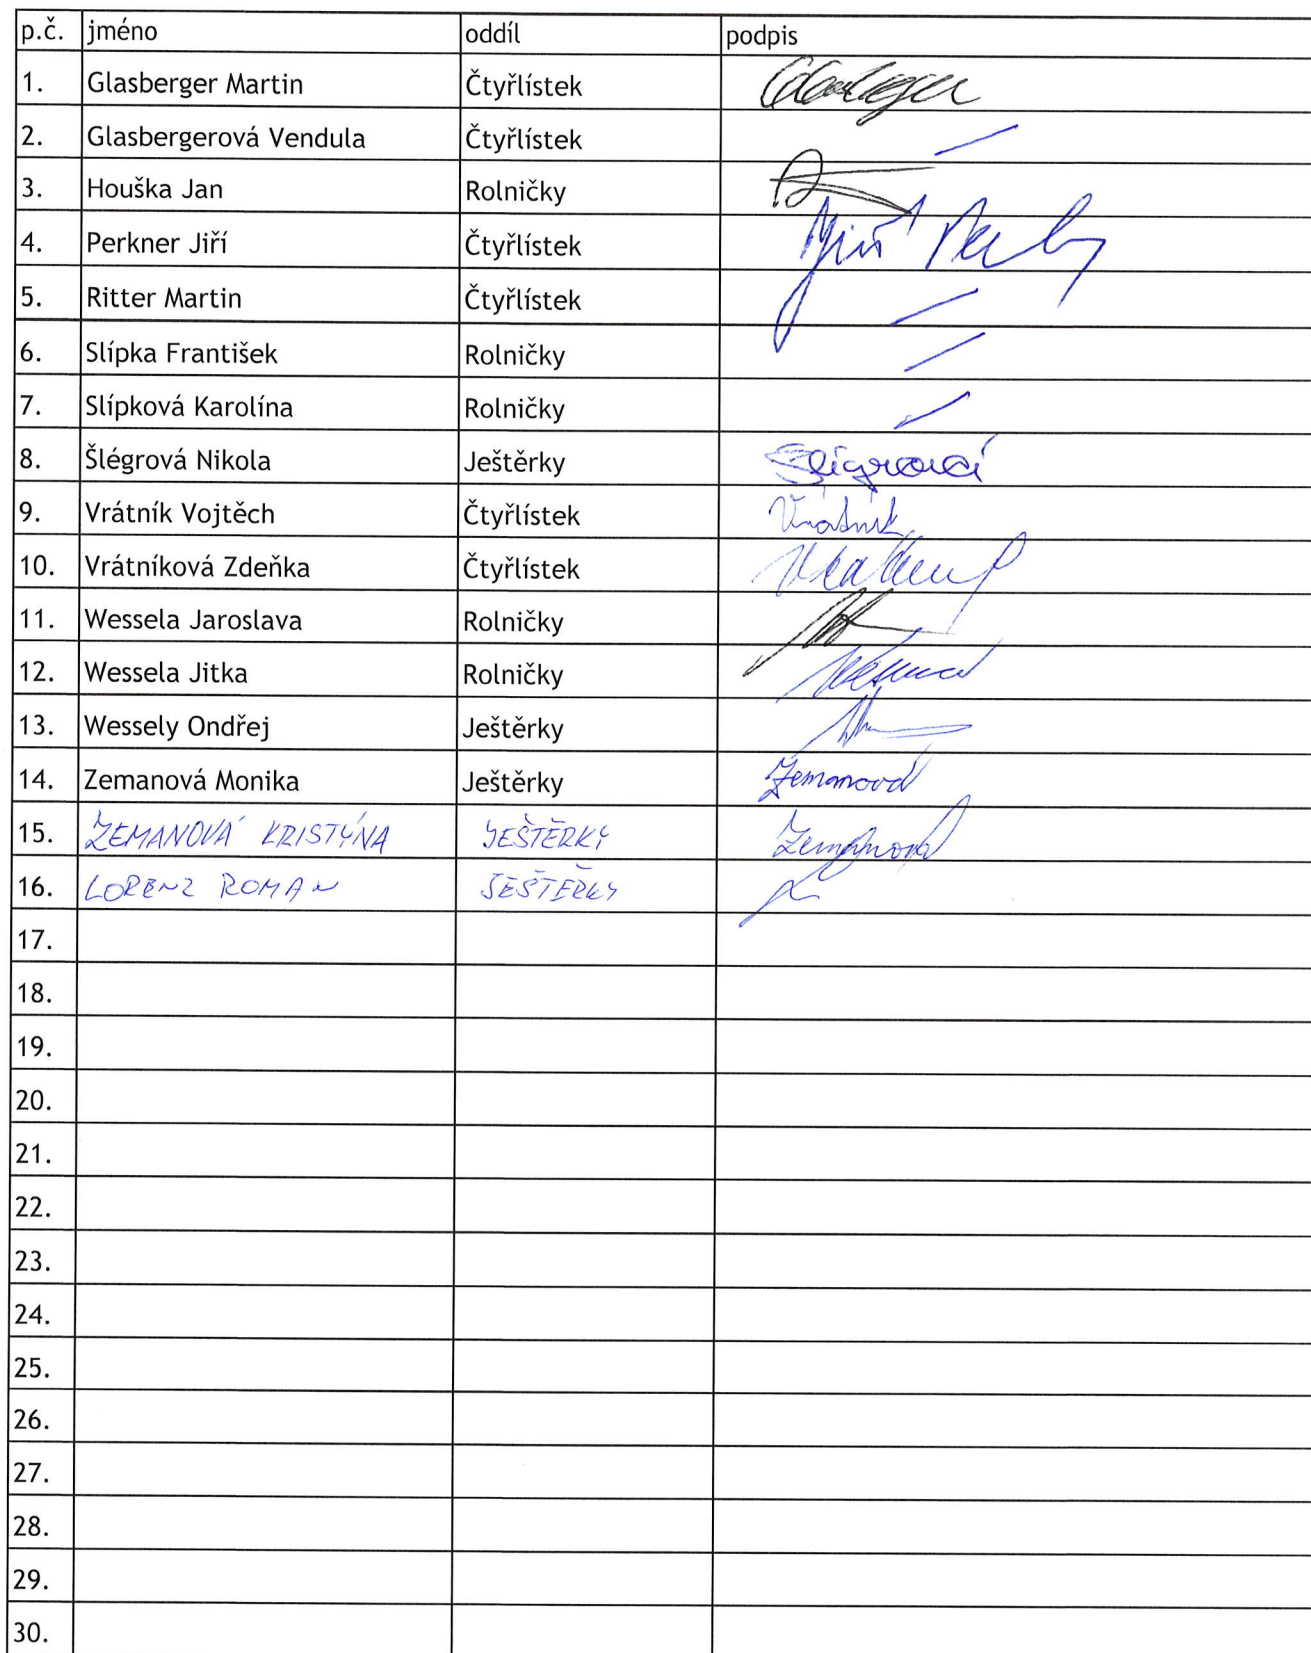 p.č. jméno oddíl podpis
1. Glasberger Martin Čtyřlístek
2. Glasbergerová Vendula Čtyřlístek
3. Houška Jan Rolničky
4. Perkner Jiří Čtyřlístek Jiří
5. Ritter Martin Čtyřlístek
6. Slípka František Rolničky
7. Slípková Karolína Rolničky
8. Šlégrová Nikola Ještěrky Šlégrová
9. Vrátník Vojtěch Čtyřlístek Vrátník
10. Vrátníková Zdeňka Čtyřlístek
11. Wessela Jaroslava Rolničky
12. Wessela Jitka Rolničky
13. Wessely Ondřej Ještěrky
14. Zemanová Monika Ještěrky Zemanová
15. ZEMANOVÁ KRISTÝNA JEŠTĚRKY Zemanová
16. LORENZ ROMAN JEŠTĚRKY
17.
18.
19.
20.
21.
22.
23.
24.
25.
26.
27.
28.
29.
30.